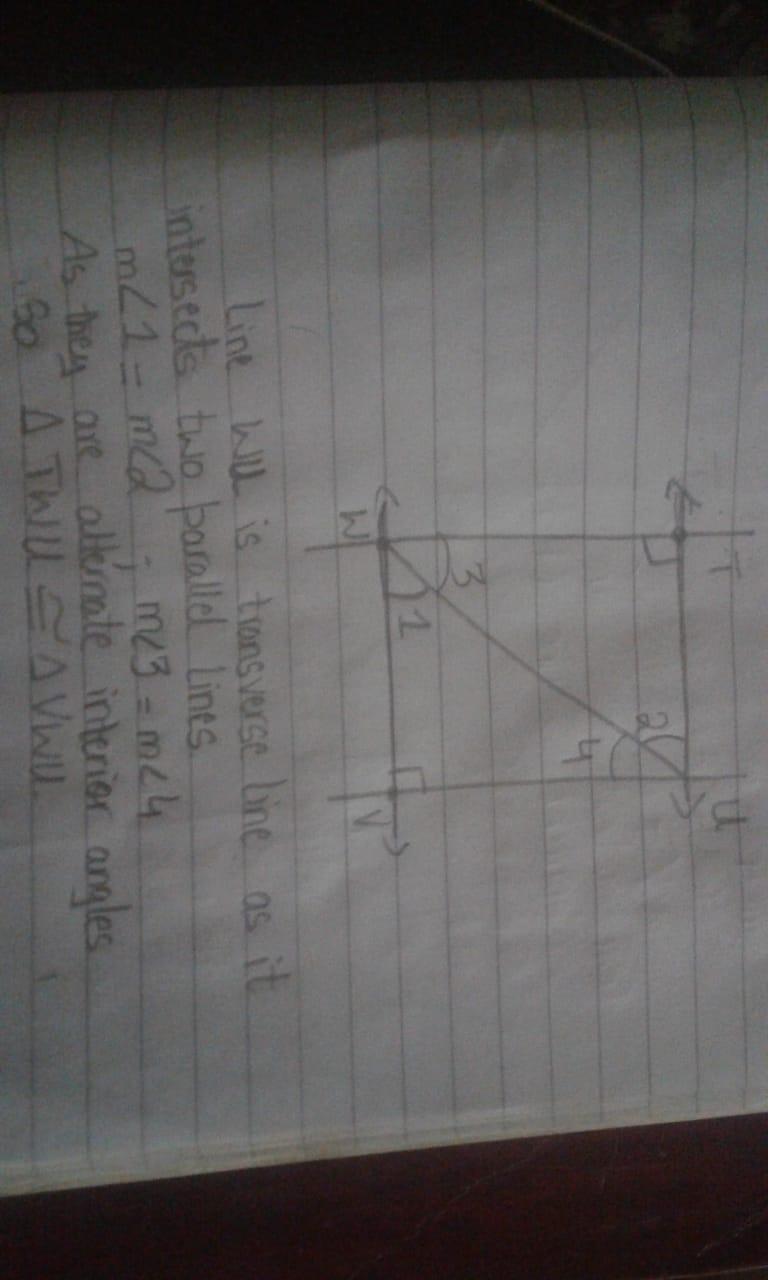 T
U
2
4
3
1
W
V
Line WU is transverse line as it
intersects two parallel lines
m<1 = m<2 ; m<3 = m<4
As they are alternate interior angles
So Δ TWU ≅ Δ VWU.